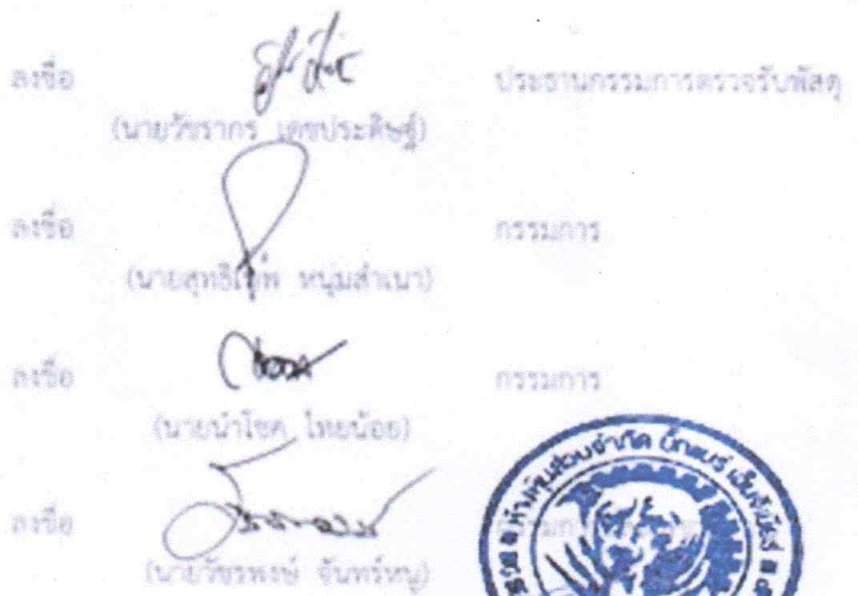 ลงชื่อ ประธานกรรมการตรวจรับพัสดุ
(นายวัชรากร เดชประดิษฐ์)
ลงชื่อ กรรมการ
(นายสุทธิ หนุ่มสำเนา)
ลงชื่อ กรรมการ
(นายนำโชค ไทยน้อย)
ลงชื่อ
(นายวัชรพงษ์ จันทร์หนู)
ห้างหุ้นส่วนจำกัด